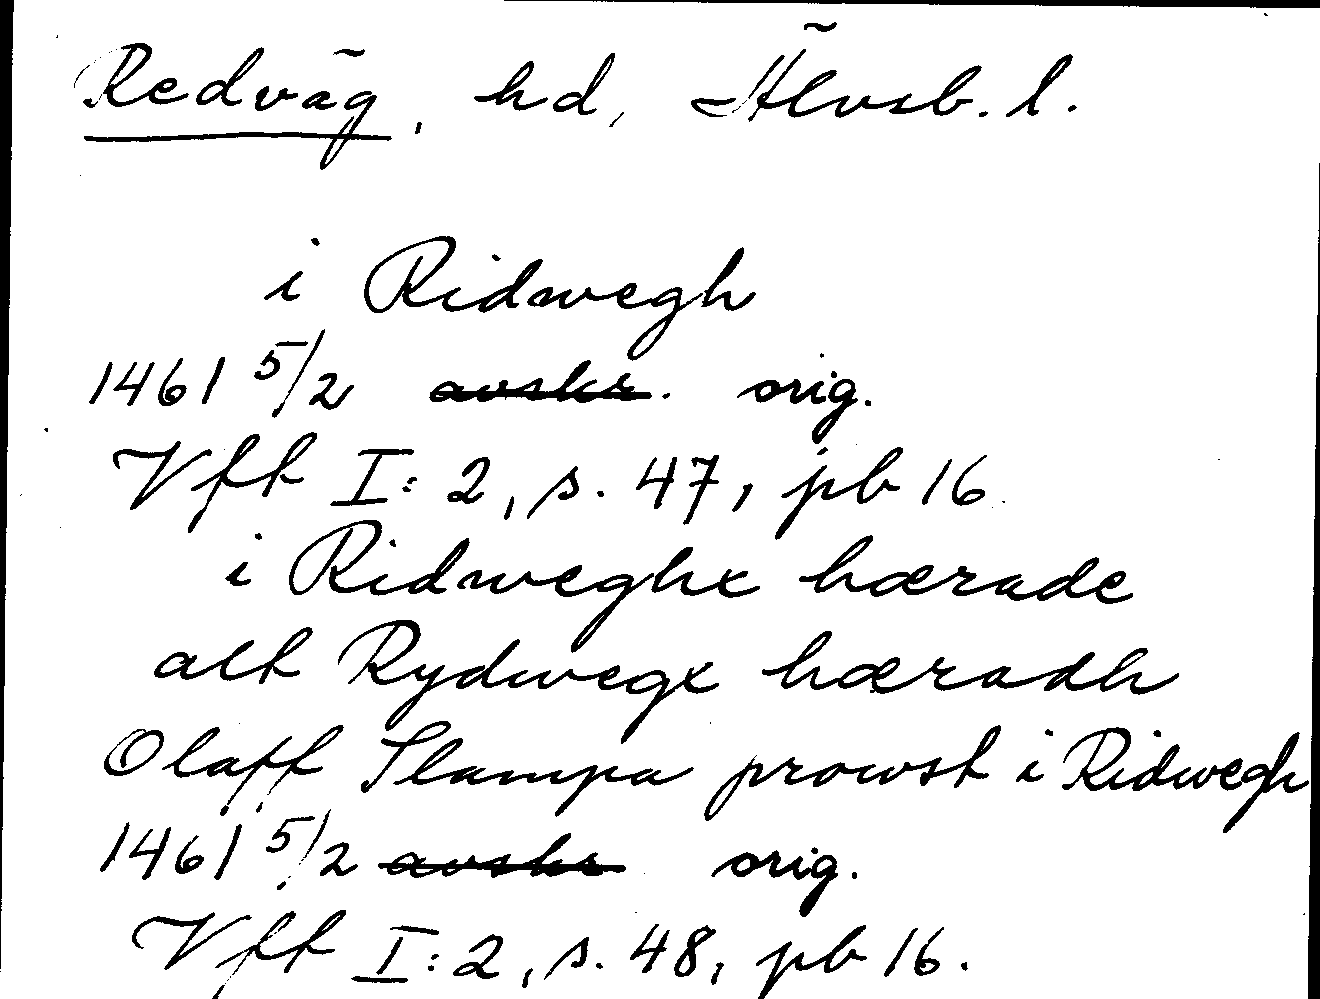 Redväg, hd, Älvsb. l.
i Ridwegh
1461 5/2 avskr. orig.
Vft I:2, s. 47, pb 16
i Ridweghæ hærade
alt Rydwegæ hæradh
Olaff Slampa prowst i Ridwegh
1461 5/2 avskr orig.
Vft I:2, s. 48, pb 16.